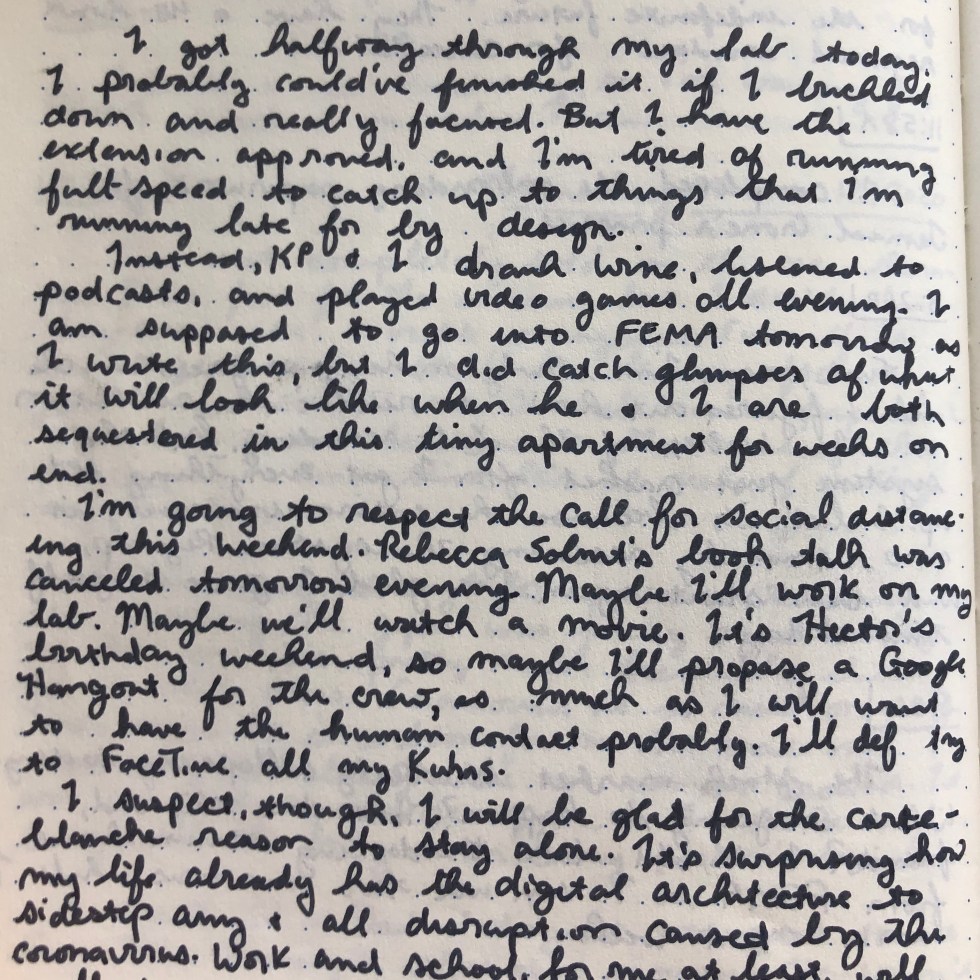 I got halfway through my lab today.
I probably could've finished it if I buckled
down and really focused. But I have the
extension approved, and I'm tired of running
full speed to catch up to things that I'm
running late for by design.
Instead, KP & I drank wine, listened to
podcasts, and played video games all evening. I
am supposed to go into FEMA tomorrow as
I write this, but I did catch glimpses of what
it will look like when he & I are both
sequestered in this tiny apartment for weeks on
end.
I'm going to respect the call for social distanc-
ing this weekend. Rebecca Solnit's book talk was
canceled tomorrow evening. Maybe I'll work on my
lab. Maybe we'll watch a movie. It's Hector's
birthday weekend, so maybe I'll propose a Google
Hangout for the crew, as much as I will want
to have the human contact probably. I'll def try
to FaceTime all my Kuhns.
I suspect, though, I will be glad for the carte-
blanche reason to stay alone. It's surprising how
my life already has the digital architecture to
sidestep any & all disruption caused by the
coronavirus. Work and school, for me at least, will